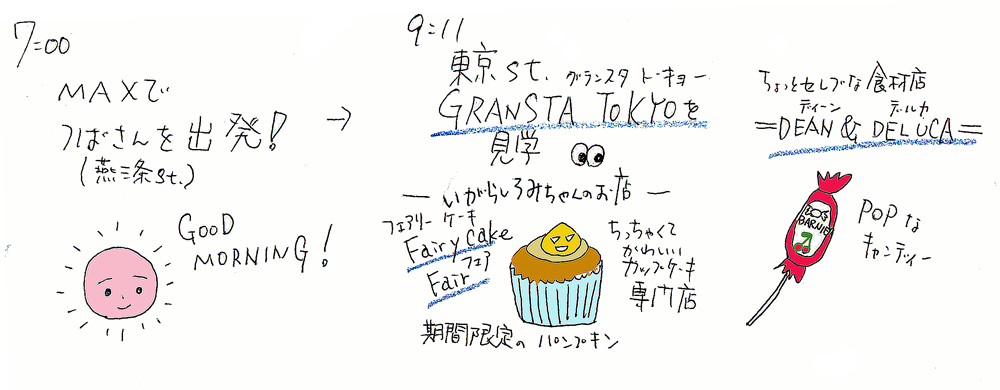 7:00
MAXで
つばさんを出発!
(燕三条st.)
GOOD
MORNING!
→
9:11
東京st. グランスタ トーキョー
GRANSTA TOKYOを
見学
― いがらしろみちゃんのお店 ―
フェアリー ケーキ
Fairy cake
フェア
Fair
ちっちゃくて
かわいいい
カップケーキ
専門店
期間限定の パンプキン
ちょっとセレブな食材店
ディーン デールカ
=DEAN & DELUCA=
BARNIE
POPな
キャンディー